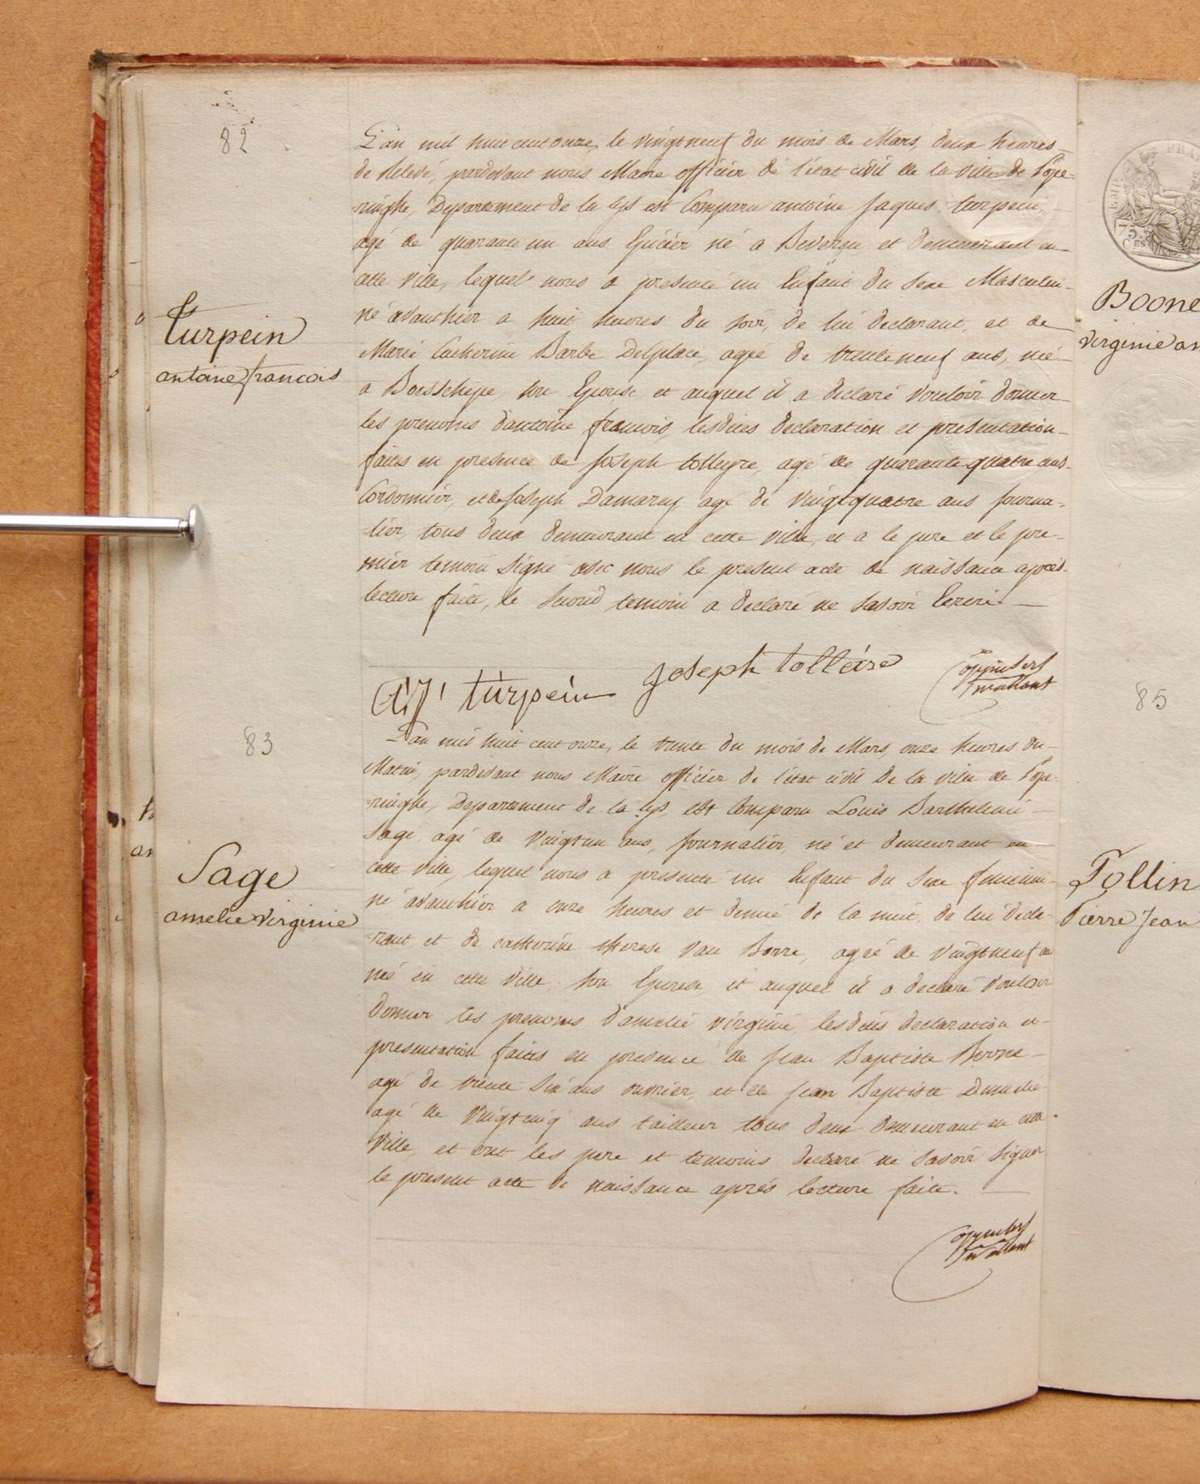 82
L'an mil huit cent onze, le vingt neuf du mois de Mars, deux heures
de relevé, pardevant nous Maire officier de l'état civil de la ville de Pope-
ringhe, Departement de la Lys est Comparu antoine Jaques turpein,
agé de quarante un ans Epicier né a et demeurant en
cette ville, lequel nous a presenté un Enfant du Sexe Masculin
né avanthier a huit heures du soir, de lui declarant, et de
Marie Catherine Barbe Delplace, agée de trente neuf ans, née
a Boesschepe, son Epouse et auquel il a declaré vouloir donner
les prenoms d'antoine francois, lesdites declaration et presentation
faites en presence de Joseph agé de quarante quatre ans
Cordonnier, et de Joseph agé de vingt quatre ans Journa-
lier, tous deux demeurant en cette ville, et a le pere et le pre-
mier temoin signé avec nous le present acte de naissance après
lecture faite, le second temoin a declaré ne savoir Ecrire.
Turpein
antoine francois
AJ turpein
Joseph tolleire
83
L'an mil huit cent onze, le trente du mois de Mars, onze heures du
Matin, pardevant nous Maire officier de l'état civil de la ville de Pope-
ringhe, Departement de la Lys est Comparu Louis Barthelemi
Sage agé de vingt un ans, Journalier, né et demeurant en
cette ville, lequel nous a presenté un Enfant du Sexe feminin
né avanthier a onze heures et demie de la nuit, de lui decla-
rant et de catherine therese Van Borre, agée de vingt neuf
née en cette ville, son Epouse, et auquel il a declaré vouloir
donner les prenoms d'amelie virginie, lesdites declaration et
presentation faites en presence de Jean Baptiste
agé de trente six ans ouvrier, et de Jean Baptiste
agé de vingt cinq ans tailleur tous deux demeurant en cette
ville, et ont les pere et temoins declaré ne savoir signer
le present acte de naissance après lecture faite.
Sage
amelie virginie
Boone
virginie
85
Tollin
Pierre Jean